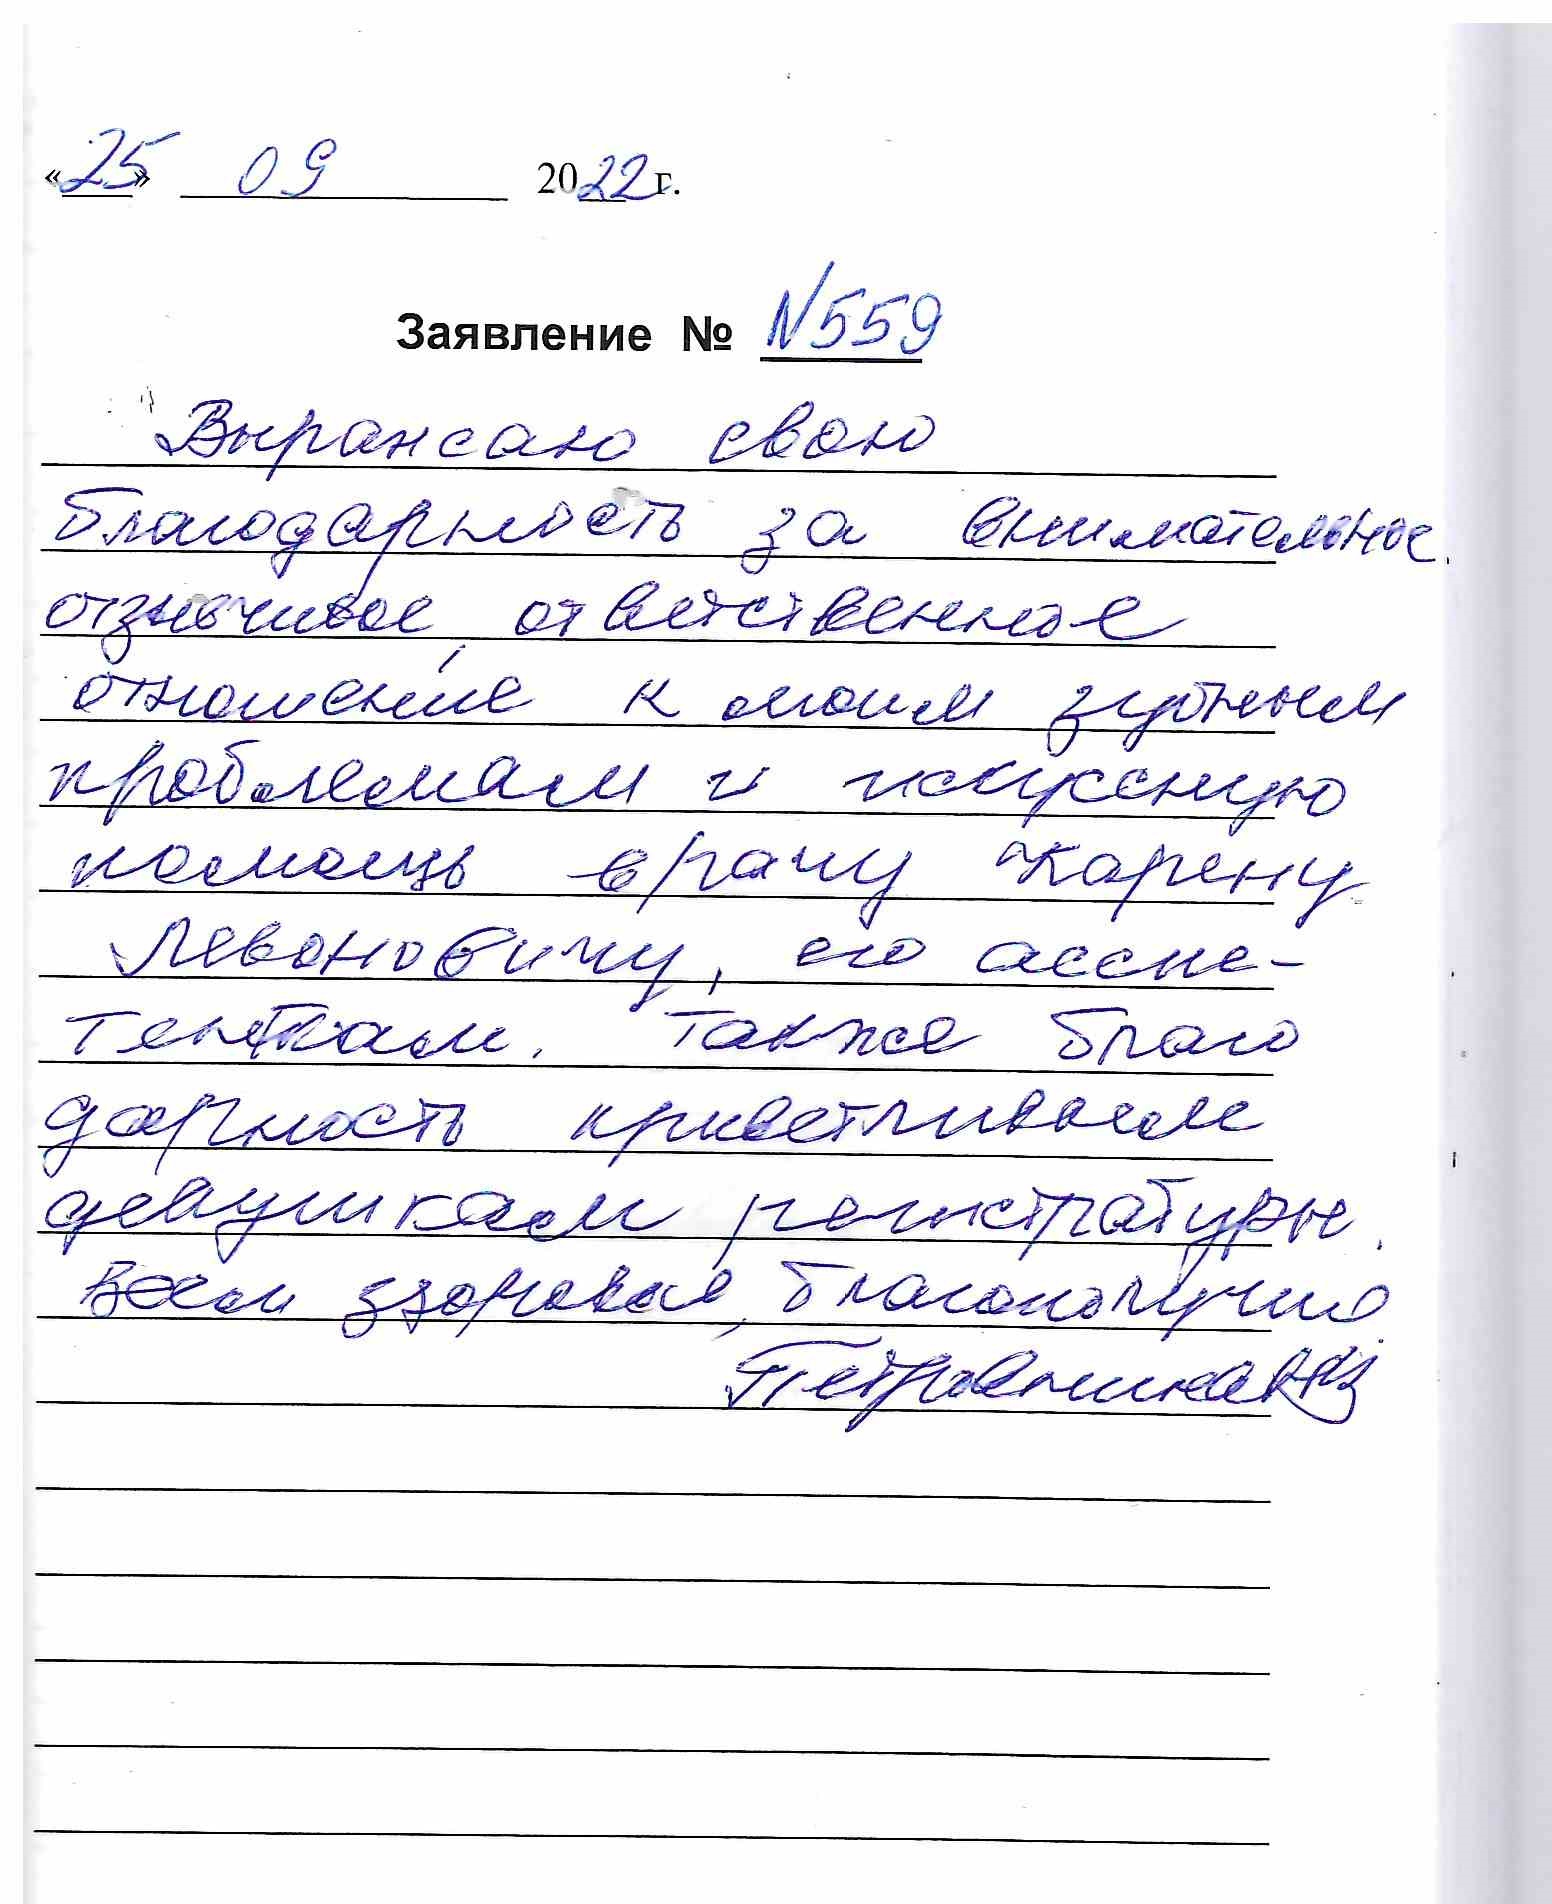 «25» 09 2022 г.
Заявление № N559
Выражаю свою
благодарность за внимательное,
отзывчивое, ответственное
отношение к моим зубным
проблемам и искусную
помощь врачу Карену
Левоновичу, его ассис-
тенткам. Также благо
дарность приветливым
девушкам регистратуры.
Всем здоровья, благополучия